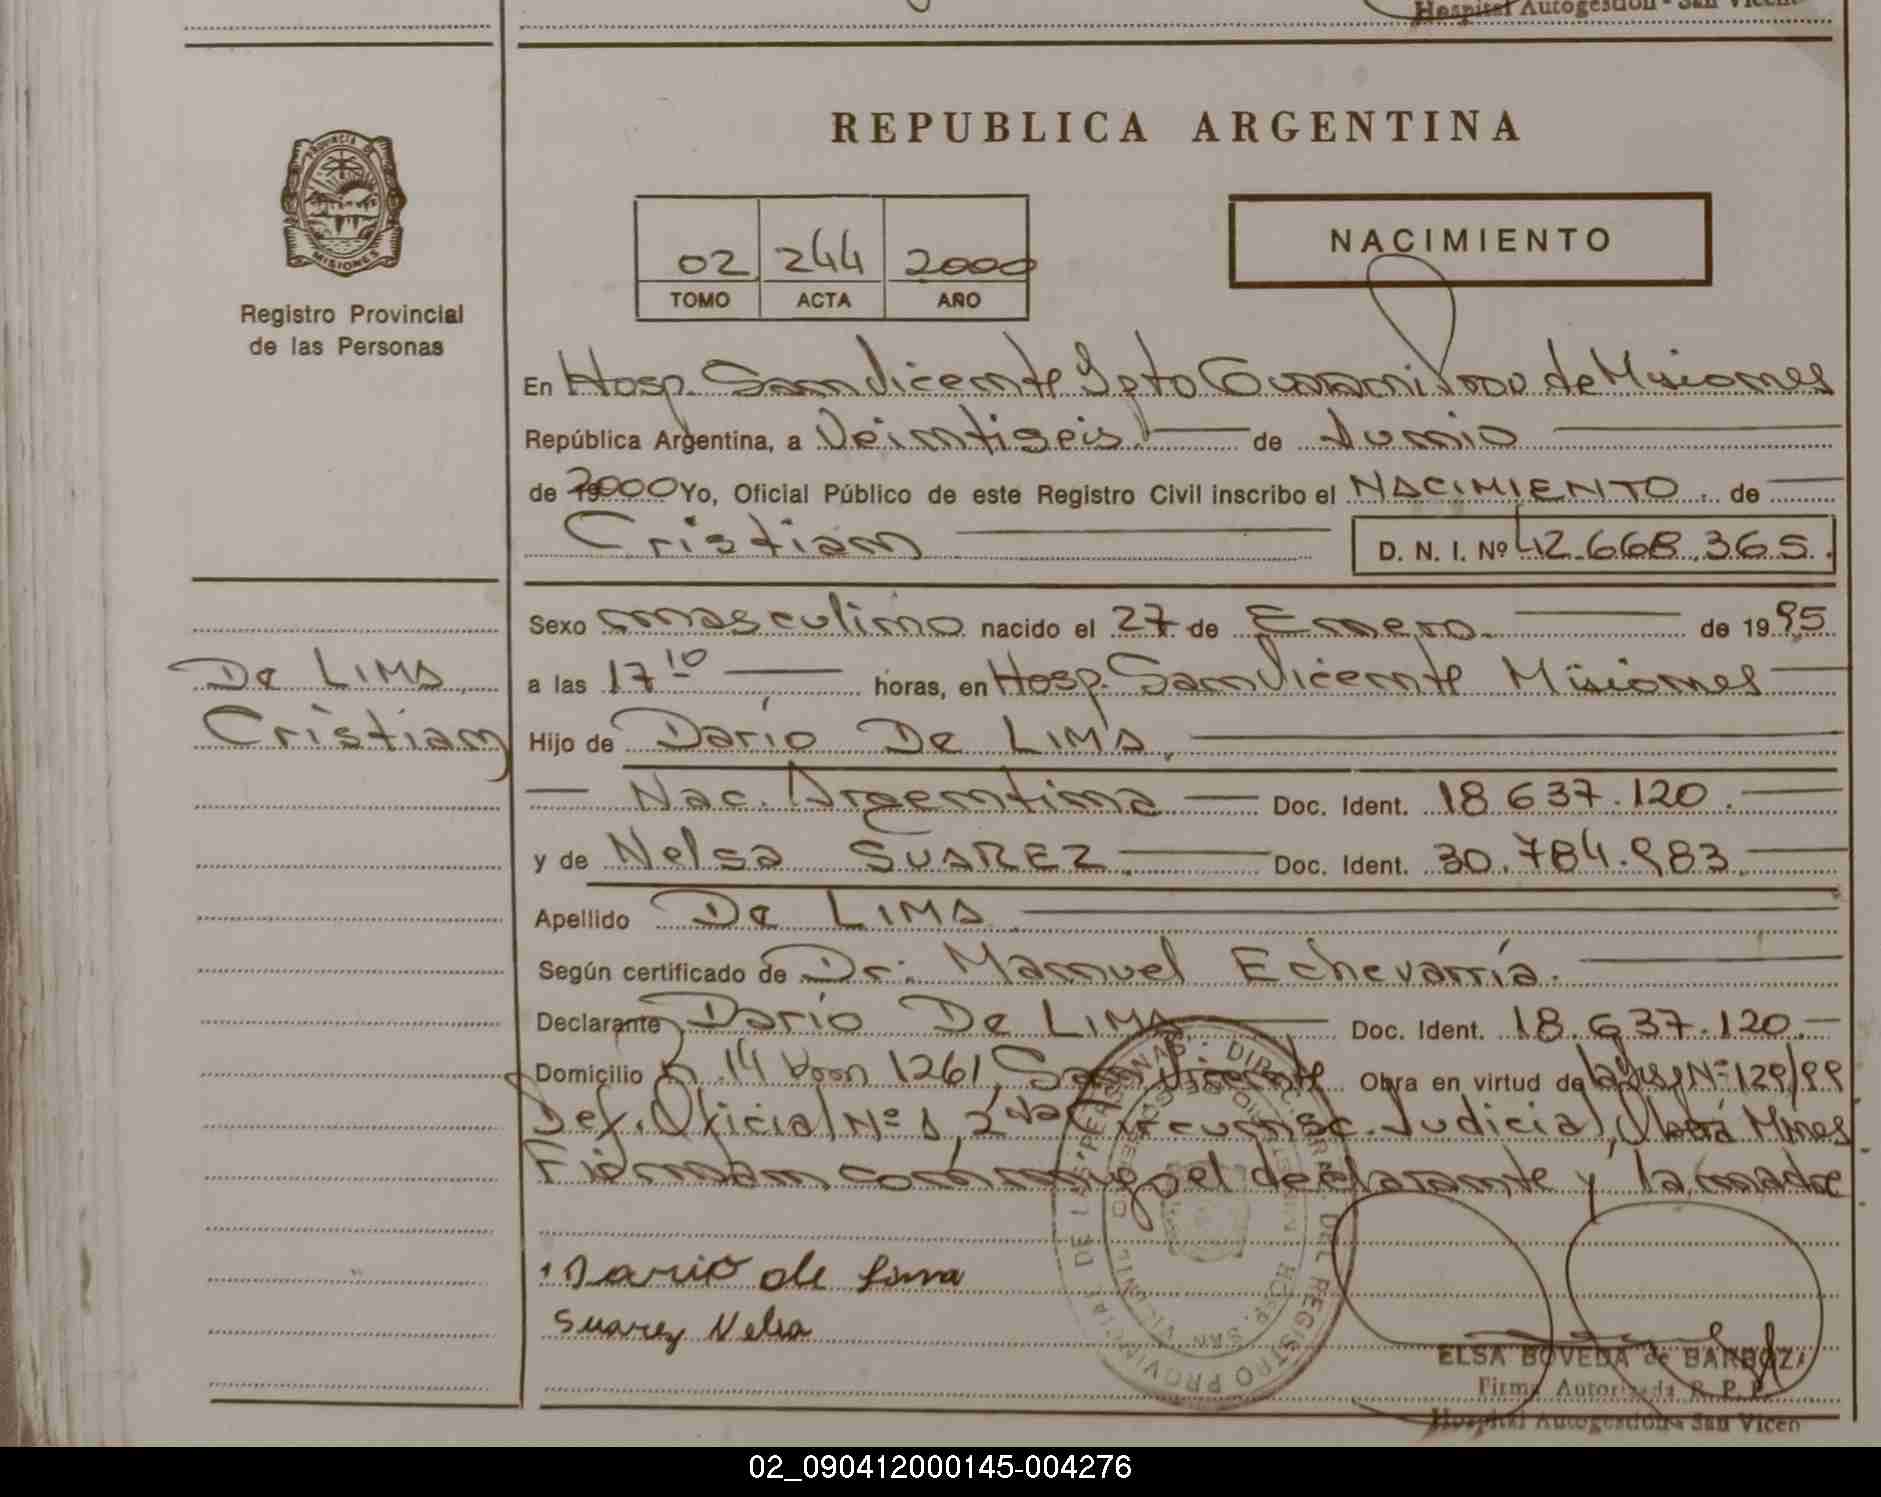 Hospital Autogestion - San Vicen
REPUBLICA ARGENTINA
PROVINCIA DE
MISIONES
Registro Provincial
de las Personas
02 244 2000
TOMO ACTA AÑO
NACIMIENTO
En Hosp. San Vicente Dpto Guarani Prov de Misiones
República Argentina, a Veintiseis de Junio
de 2000 Yo, Oficial Público de este Registro Civil inscribo el NACIMIENTO de
Cristian D. N. I. Nº 42.668.365.
Sexo masculino nacido el 27 de Enero de 1995
De LIMA
Cristian
a las 17 10 horas, en Hosp. San Vicente Misiones
Hijo de Darío De LIMA
Nac. Argentina Doc. Ident. 18.637.120.
y de Nelsa SUAREZ Doc. Ident. 30.784.983
Apellido De LIMA
Según certificado de Dr. Manuel Echevarría.
Declarante Darío De LIMA Doc. Ident. 18.637.120.
Domicilio 14 1261 San Vicente Obra en virtud de Nº 129/99
Def. Oficial Nº 1, 2da Circunsc. Judicial, Oberá Mnes
Firman conmigo el declarante y la madre
Dario de Lima
Suarez Nelsa
DIREC. GRAL. DEL REGISTRO PROVINCIAL DE LAS PERSONAS
HOSP. SAN VICENTE
ELSA BOVEDA de BARBOZA
Firma Autorizada R. P. P.
Hospital Autogestion - San Vicen
02_090412000145-004276